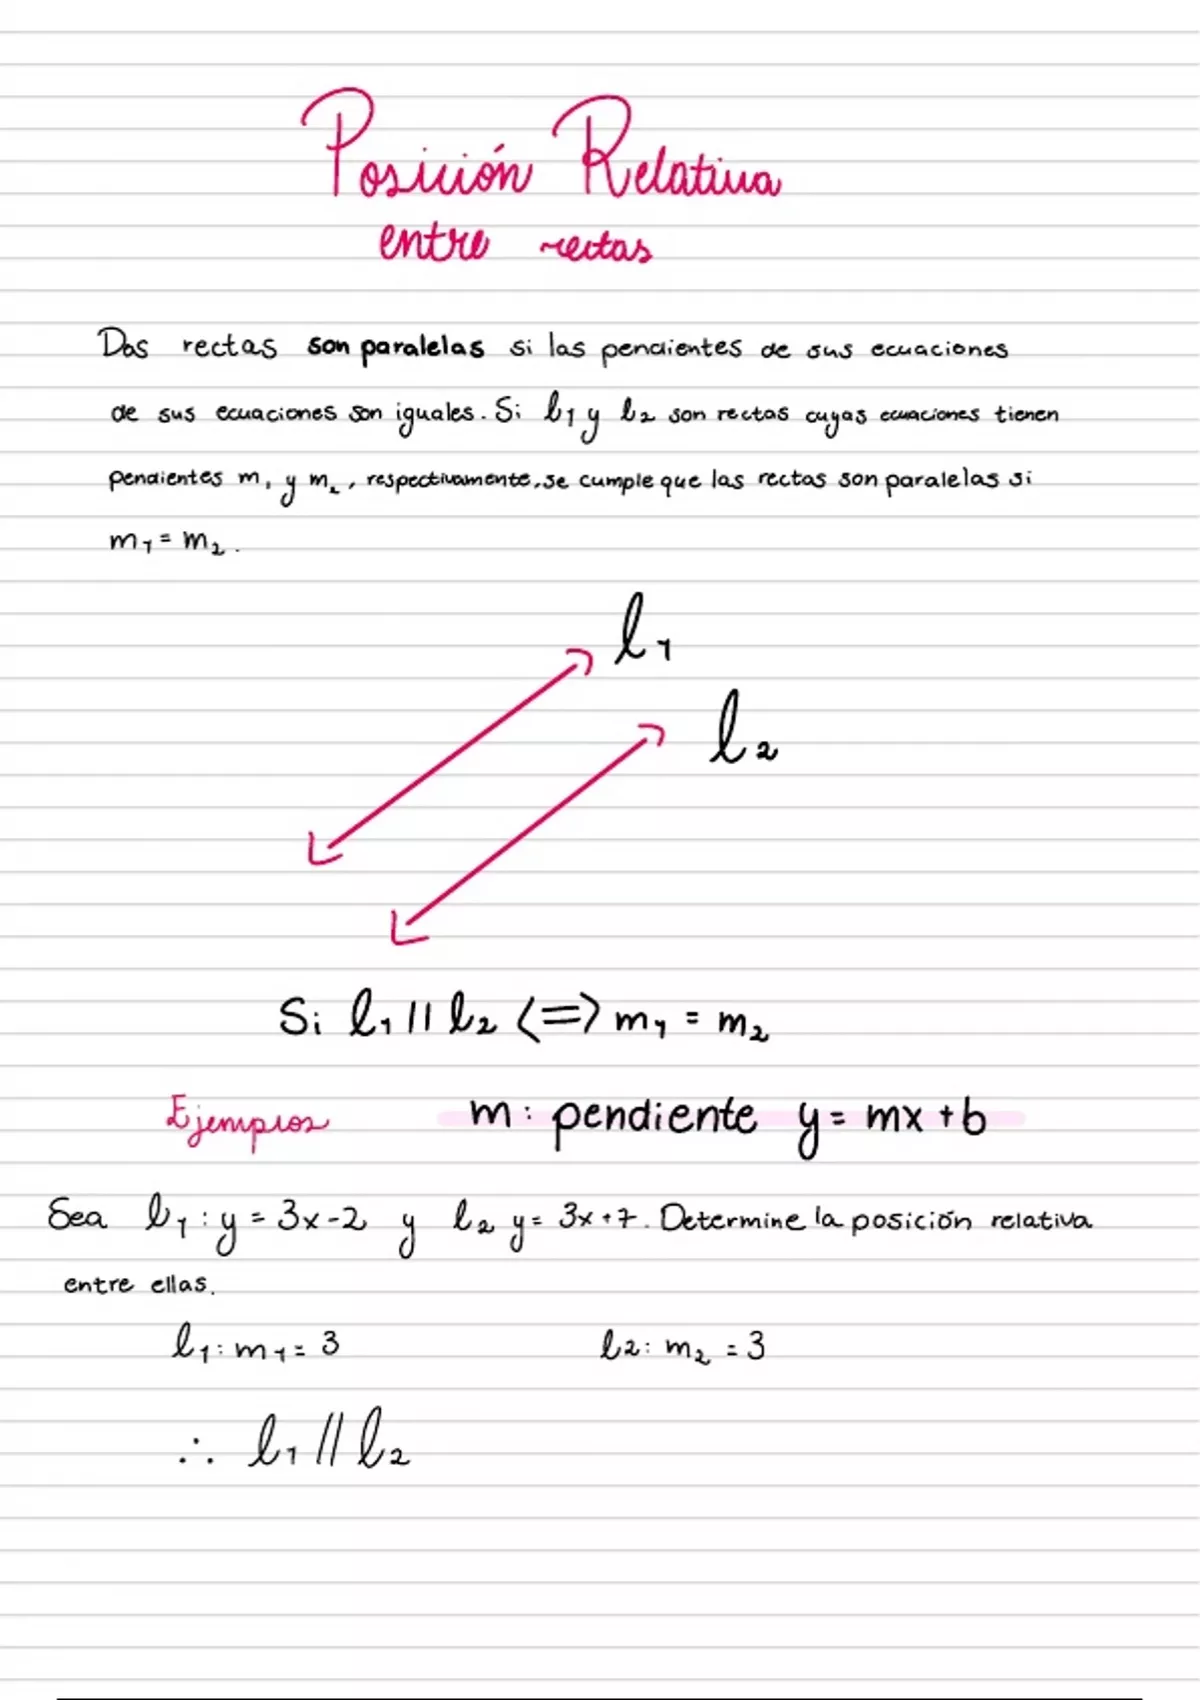 Posición Relativa
entre rectas
Dos rectas son paralelas si las pendientes de sus ecuaciones
de sus ecuaciones son iguales. Si l₁ y l₂ son rectas cuyas ecuaciones tienen
pendientes m₁ y m₂, respectivamente, se cumple que las rectas son paralelas si
m₁ = m₂.
l₁
l₂
Si l₁ || l₂ <=> m₁ = m₂
Ejemplos m: pendiente y = mx + b
Sea l₁: y = 3x - 2 y l₂ y = 3x + 7. Determine la posición relativa
entre ellas.
l₁: m₁ = 3 l₂: m₂ = 3
∴ l₁ // l₂